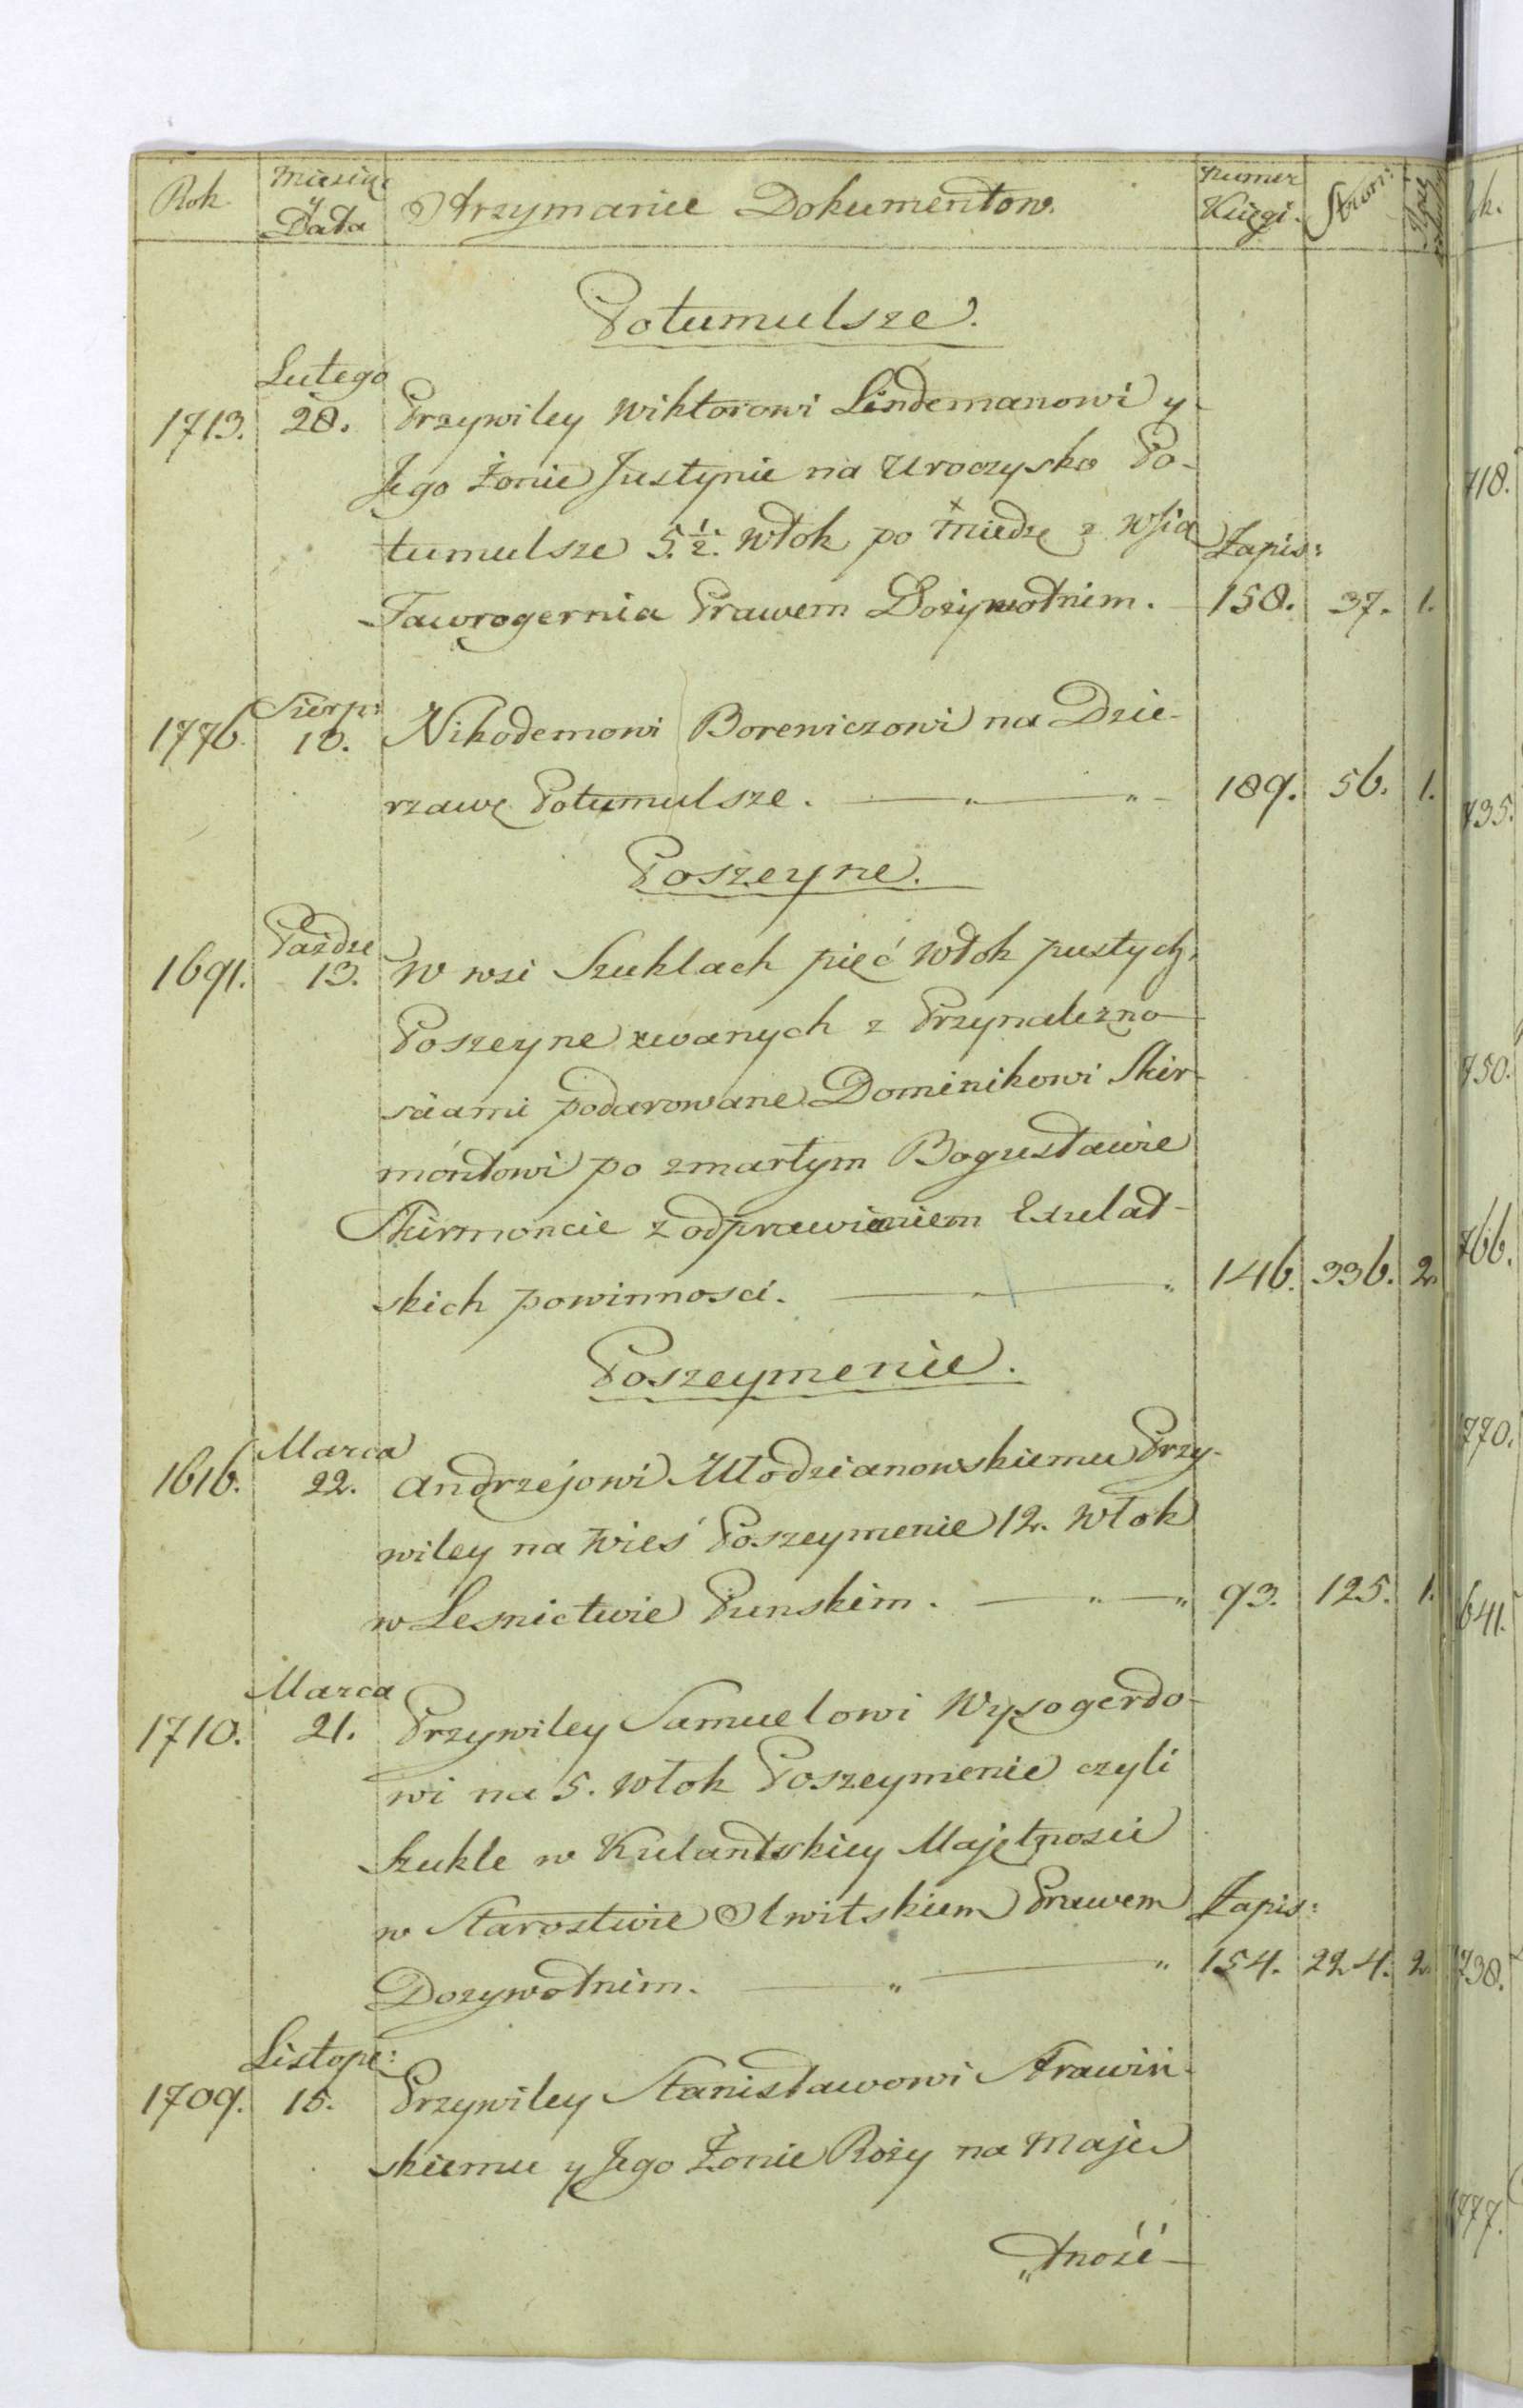 Rok
Miesiąc
y
Data
Otrzymanie Dokumentow.
Numer
Księgi.
Stron:
Potumulsze.
Lutego
1713. 28. Przywiley Wiktorowi Lindemanowi y
Jego Żonie Justynie na Uroczysko Po-
tumulsze 5.½. Włok po Miedzę z Wsią Zapis:
Tawrogernia Prawem Dożywotnim. 158. 37. 1.
Sierp:
1776. 10. Nikodemowi Boreniczowi na Dzie-
rzawę Potumulsze. 189. 56. 1.
Poszeyne.
Paźdze
1691. 13. W wsi Szuklach pięć Włok pustych,
Poszeyne zwanych z Przynalezno-
sciami podarowane Dominikowi Skir-
móntowi po zmarłym Bogusławie
Skirmoncie z odprawianiem
skich powinnosci. 146. 336. 2.
Poszeymenie.
Marca
1616. 22. Andrzejowi Młodzianowskiemu Przy-
wiley na Wieś Poszeymenie 12. Włok
w Lesnictwie Punskim. 93. 125. 1.
Marca
1710. 21. Przywiley Samuelowi Wysogerdo-
wi na 5. Włok Poszeymenie czyli
Szukle w Kulantskiey Majętnosci
w Starostwie Olwitskiem Prawem Zapis:
Dozywotnim. 154. 224. 2.
Listop:
1709. 15. Przywiley Stanisławowi Strawiń-
skiemu y Jego Żonie Roży na Maję
„tność